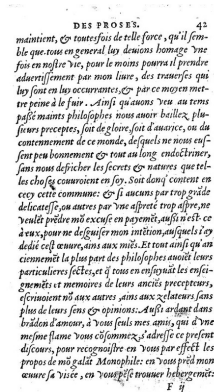 DES PROSES. 42
maintient, & toutesfois de telle force, qu'il sem-
ble que tous en general luy deuions homage vne
fois en nostre vie, pour le moins pourra il prendre
aduertissement par mon liure, des trauerses qui
luy sont en luy occurrantes, & par ce moyen met-
tre peine à le fuir. Ainsi qu'auons veu au tems
passé maints philosophes nous auoir baillez plu-
sieurs preceptes, soit de gloire, soit d'auarice, ou du
contennement de ce monde, desquels ne nous eus-
sent peu bonnement & tout au long endoctriner,
sans nous defricher les secrets & natures que tel-
les choses couuroient en soy. Soit donq' content en
cecy cette commune: & si aucuns par trop grāde
delicatesse, ou autres par vne aspreté trop aspre, ne
veulēt prēdre mō excuse en payemēt, aussi n'est-ce
à eux, pour ne desguiser mon intētion, ausquels i'ay
dedié cest œuure, ains aux miēs. Et tout ainsi qu'an
ciennemēt la plus part des philosophes auoiēt leurs
particulieres sectes, et q̃ tous en ensuyuāt les ensei-
gnemēts et memoires de leurs anciēs precepteurs,
escriuoient nō aux autres, ains aux zelateurs sans
plus de leurs sens & opinions: Aussi ardant dans
brādon d'amour, à vous seuls mes amis, qui d'vne
mesme flame vous cōsommez, s'adresse ce present
discours, pour recognoistre en vous par effect les
propos de mō galāt Monophile: en vous prēd mon
œuure sa visée, en vous pēse trouuer hebergemēt:
F ij